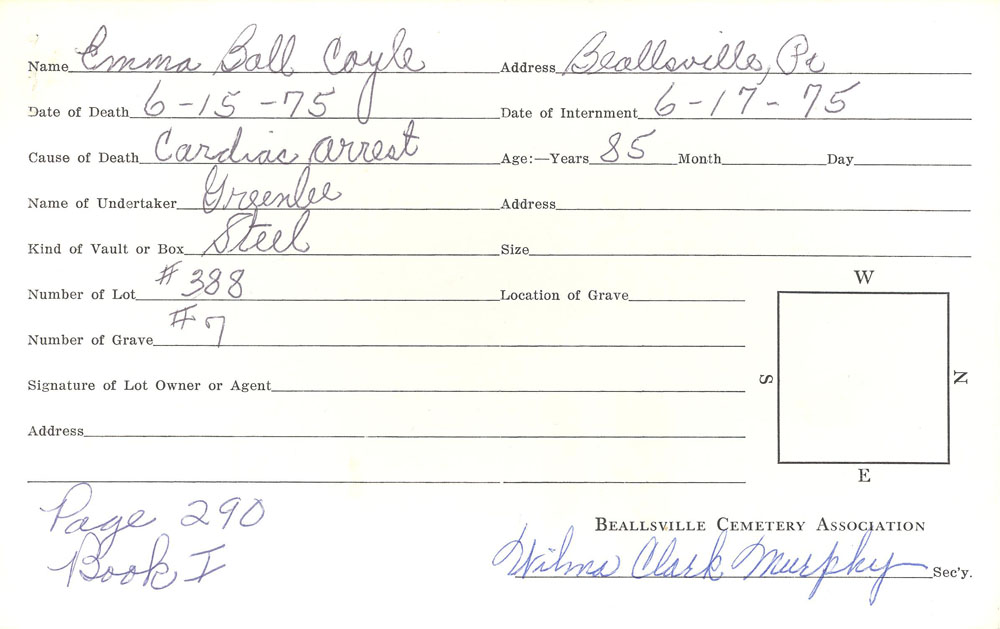 Name Emma Ball Coyle Address Beallsville, Pa
Date of Death 6-15-75 Date of Internment 6-17-75
Cause of Death Cardiac arrest Age:—Years 85 Month Day
Name of Undertaker Greenlee Address
Kind of Vault or Box Steel Size
Number of Lot #388 Location of Grave
W
Number of Grave #7
S N
Signature of Lot Owner or Agent
Address
E
Page 290
Book I
BEALLSVILLE CEMETERY ASSOCIATION
Wilma Clark Murphy Sec'y.